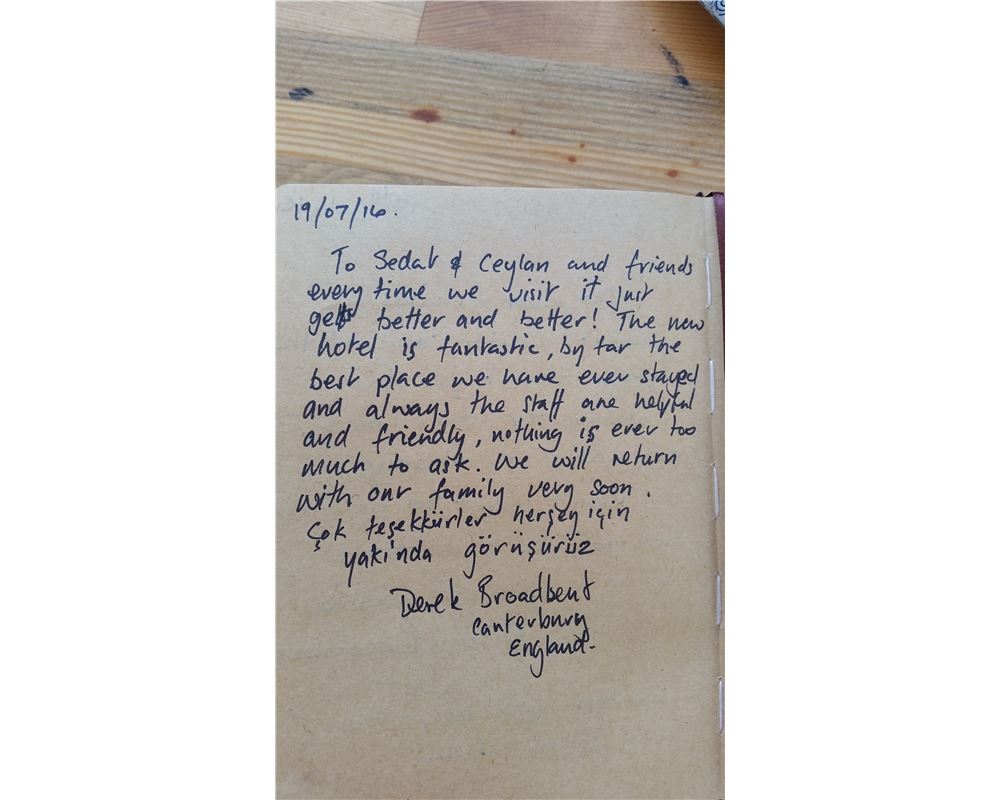 19/07/16.
To Sedat & Ceylan and friends
every time we visit it just
gets better and better! The new
hotel is fantastic, by far the
best place we have ever stayed
and always the staff are helpful
and friendly, nothing is ever too
much to ask. We will return
with our family very soon.
Çok teşekkürler herşey için
yakinda görüşürüz
Derek Broadbent
Canterbury
England.